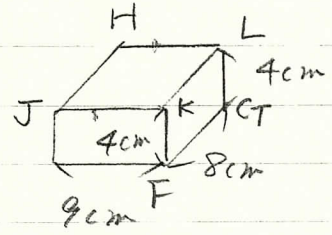 H
L
4cm
J
K
G
4cm
8cm
F
9cm